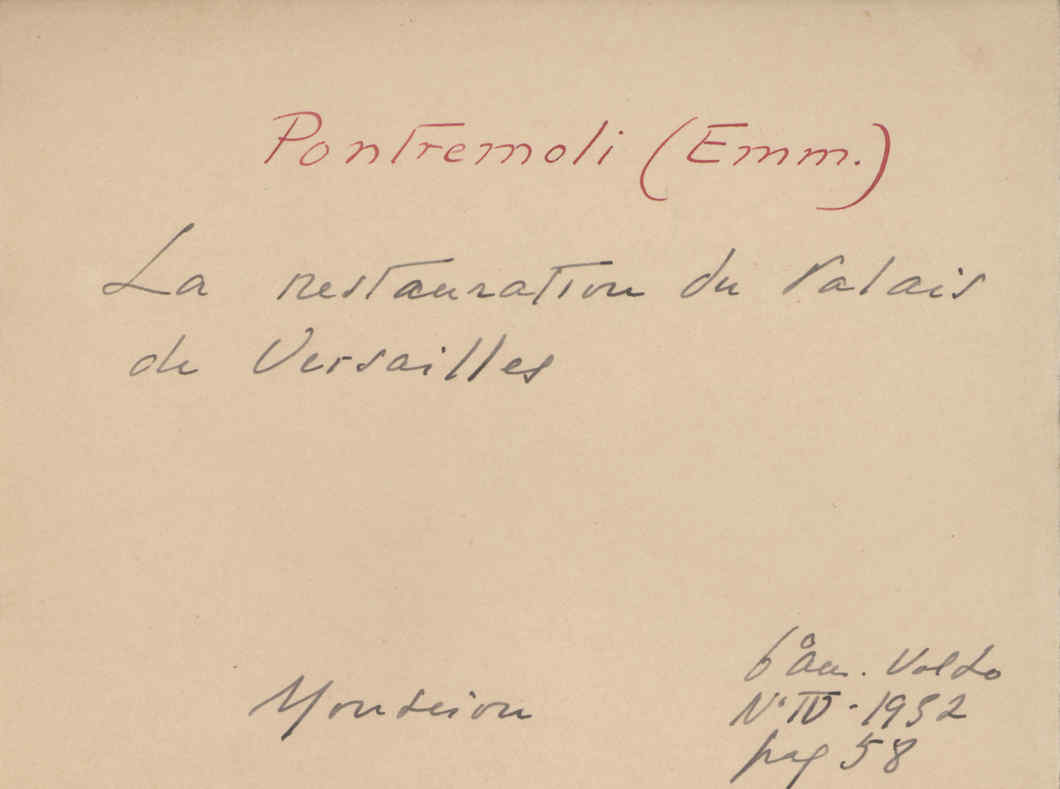 Pontremoli (Emm.)
La restauration du Palais
de Versailles
Mouseion
6º ann. Vol 20
Nº IV - 1932
pag 58